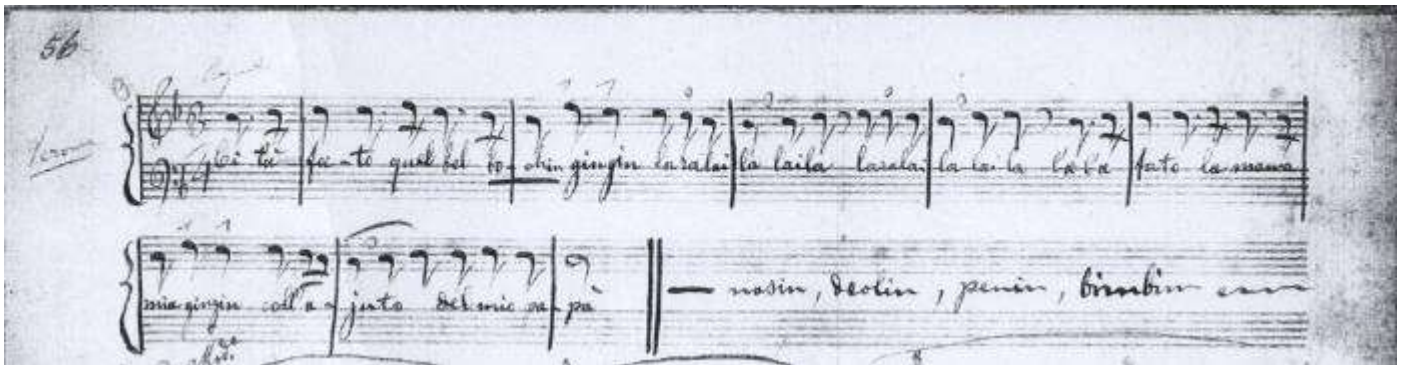 56
fa-to quel bel bo-chin gingin la ralai la laila laralai la la la la l'a fato la mama
mia gingin coll'a-juto del mio pa-pà — nosin, deolin, penin, bimbin